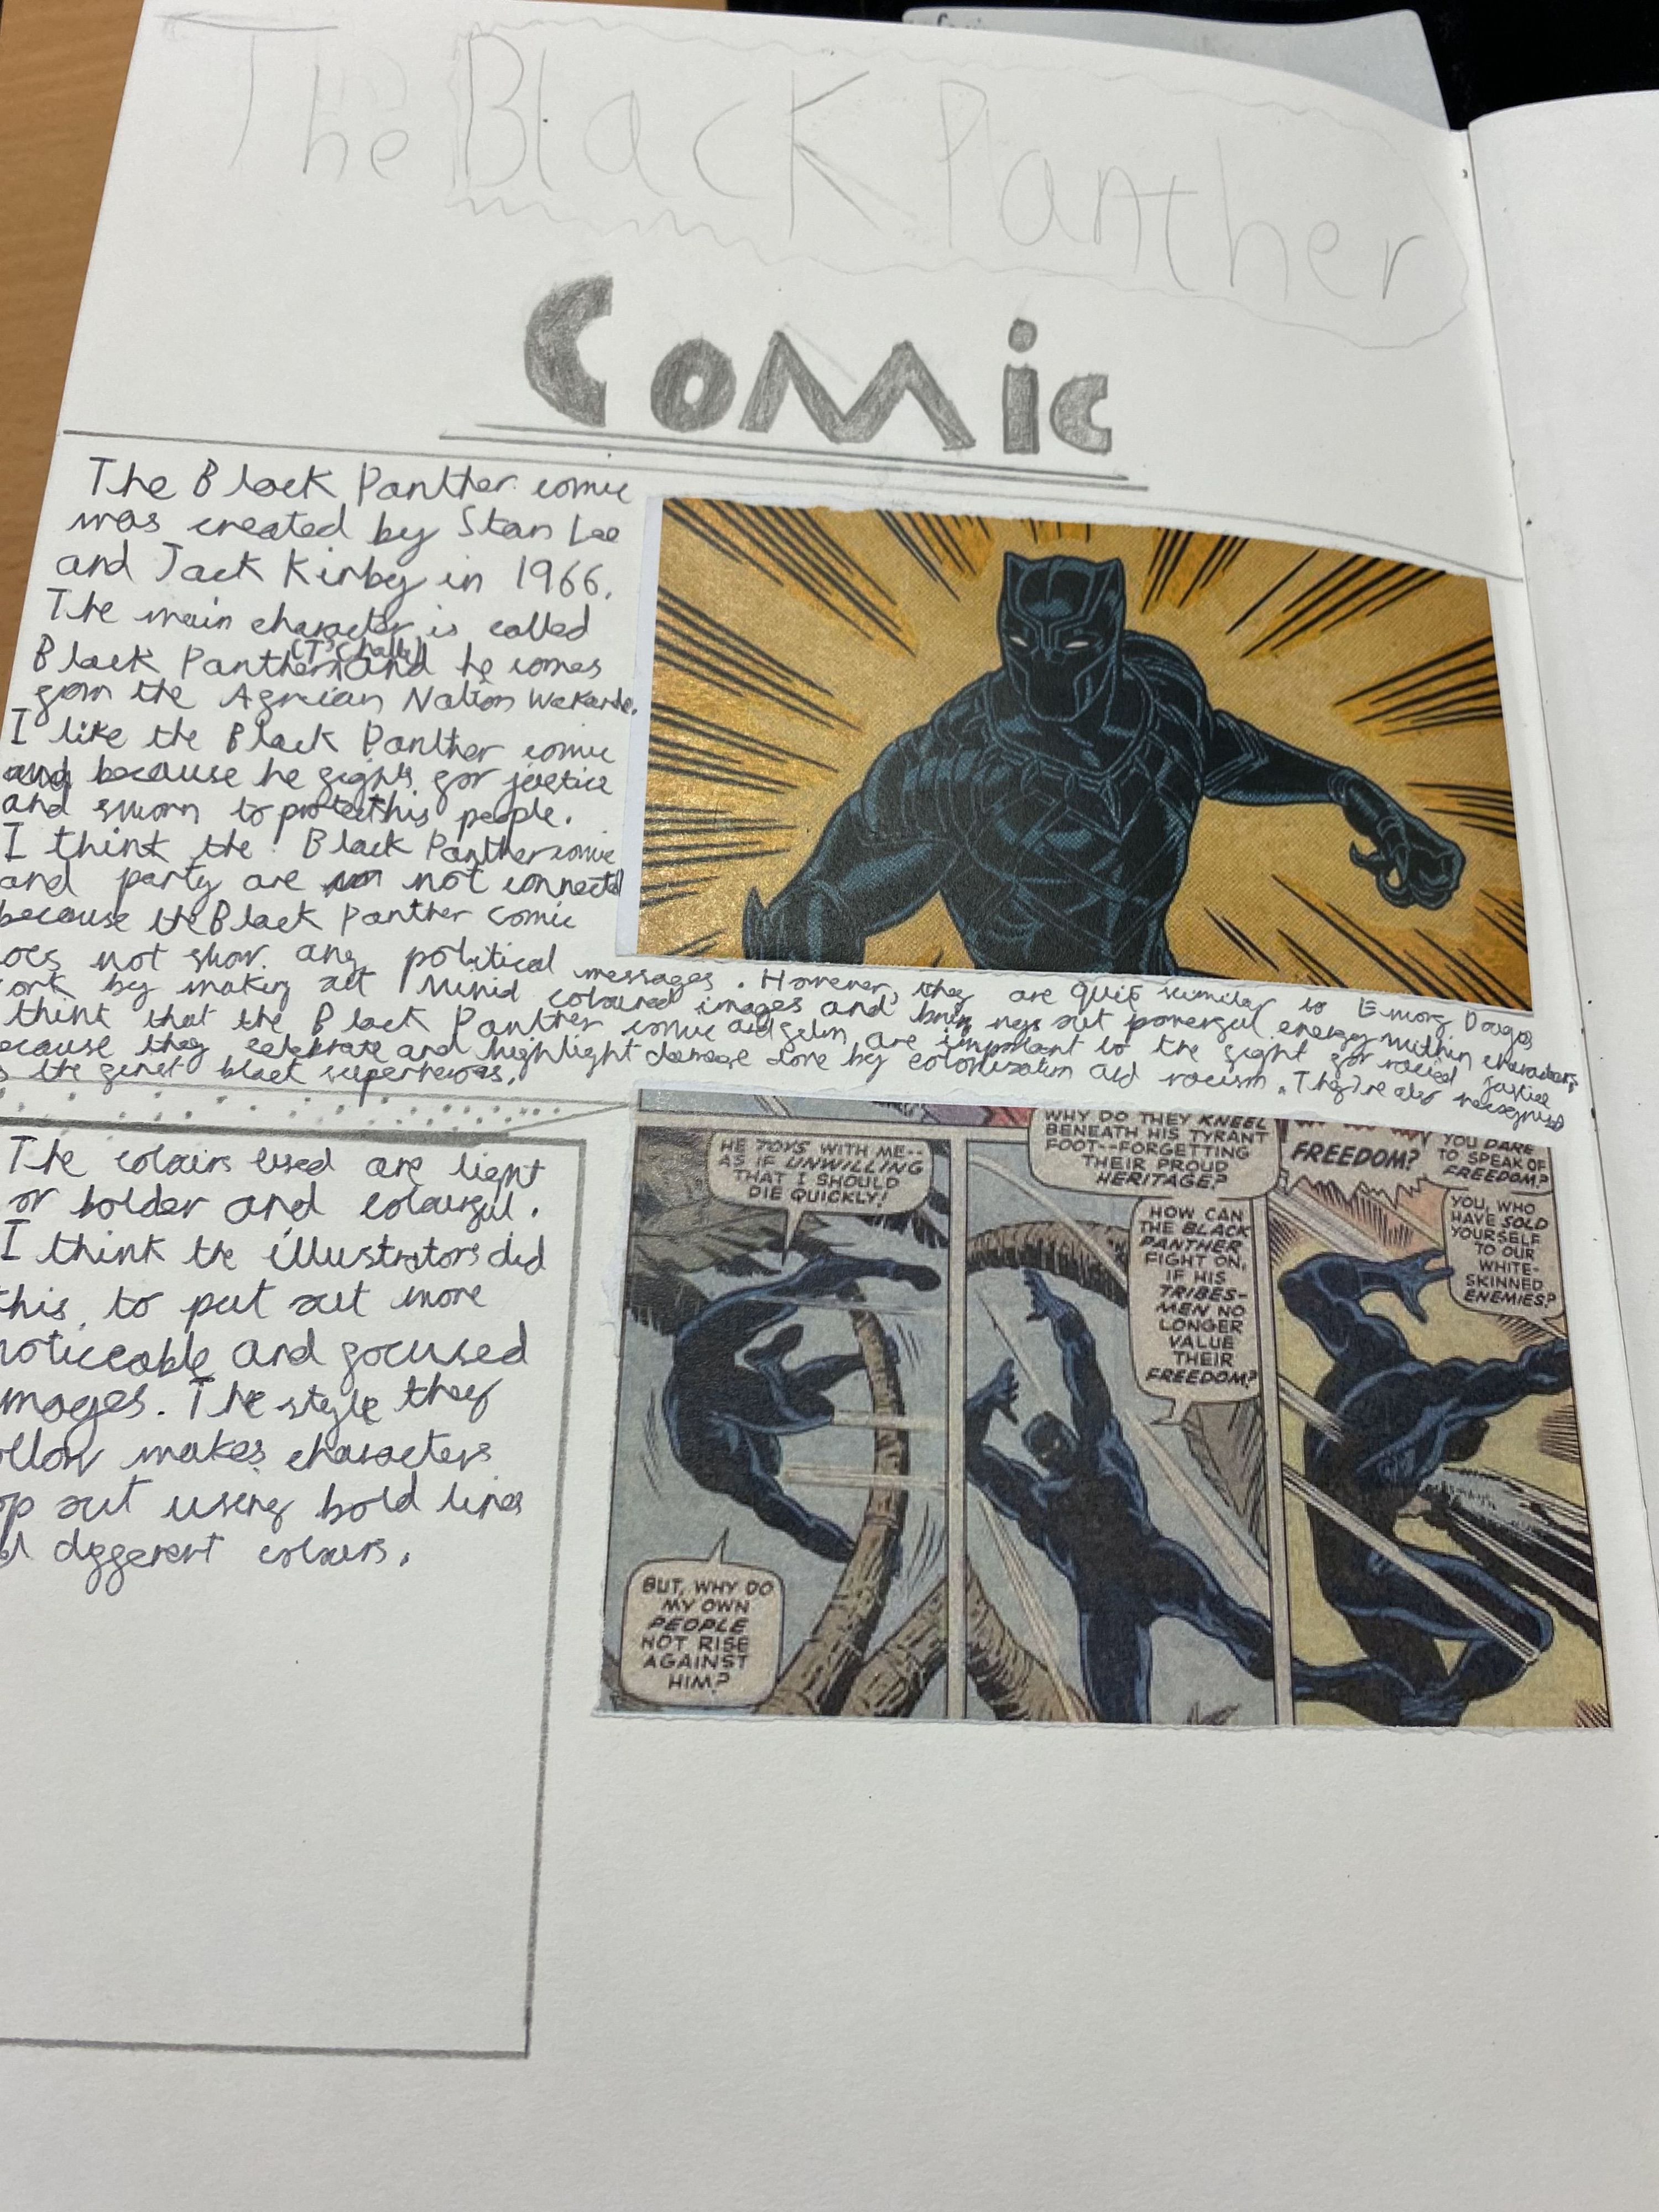 The Black Panther
Comic
The Black Panther comic
was created by Stan Lee
and Jack Kirby in 1966.
The main character is called
(T'Challa)
Black Panther and he comes
from the African Nation Wakanda.
I like the Black Panther comic
and because he fights for justice
and sworn to protect his people.
I think the Black Panther comic
and party are not connected
because the Black Panther comic
oes not show any political messages. However, they are quite similar to Emory Douglas
ork by making art vivid coloured images and out powerful energy within characters.
think that the Black Panther comic and film are important to the fight for racial justice
ecause they celebrate and highlight damage done by colonization and racism. They're also recognised
s the first black superheroes.
The colours used are light
or bolder and colourful.
I think the illustrators did
this to put out more
noticeable and focused
mages. The style they
ollow makes characters
op out using bold lines
d different colours.
HE TOYS WITH ME--
AS IF UNWILLING
THAT I SHOULD
DIE QUICKLY!
BUT, WHY DO
MY OWN
PEOPLE
NOT RISE
AGAINST
HIM?
WHY DO THEY KNEEL
BENEATH HIS TYRANT
FOOT--FORGETTING
THEIR PROUD
HERITAGE?
HOW CAN
THE BLACK
PANTHER
FIGHT ON,
IF HIS
TRIBES-
MEN NO
LONGER
VALUE
THEIR
FREEDOM?
FREEDOM?
YOU DARE
TO SPEAK OF
FREEDOM?
YOU, WHO
HAVE SOLD
YOURSELF
TO OUR
WHITE-
SKINNED
ENEMIES?